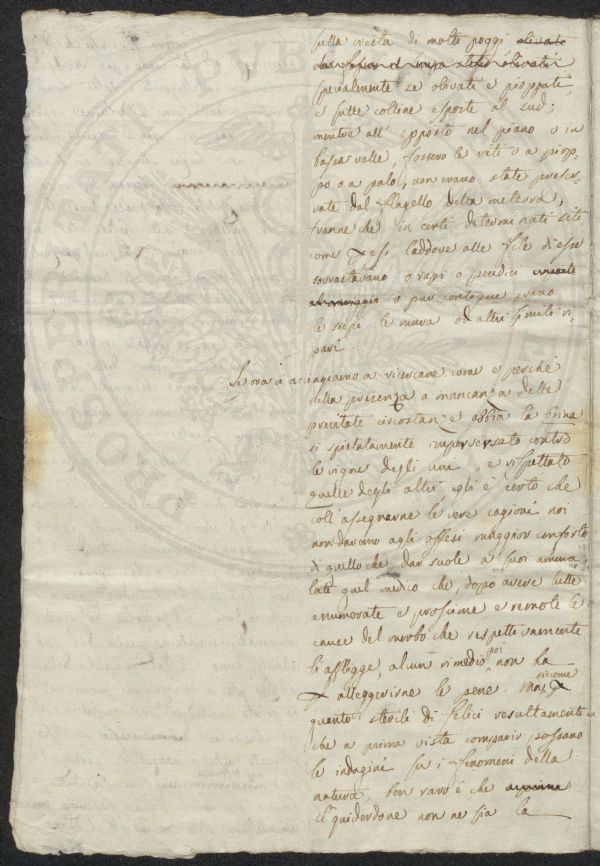 sulla cresta di molti poggi olivate
specialmente se olivate e pioppate,
e sulle colline esposte al sud;
mentre all' opposto nel piano o in
bassa valle, fossero le viti o a piop-
po o a palo, non erano state preser-
vate dal flagello della meteora,
franne che in certi determinati siti
come p es. laddove alle file d'esse
sovrastavano o rupi o pendici
o pur contigue erano
le siepi le mura od altri simili ri-
pari.
Se ora ci accingiamo a ricercare come e perchè
della presenza o mancanza delle
precitate circostanze abbia la brina
si spietatamente imperversato contro
le vigne degli uni e rispettato
quelle degli altri egli è certo che
coll' assegnarne le vere cagioni noi
non daremo agli offesi maggior conforto
di quello che dar suole a' suoi amma-
lati quel medico che, dopo avere tutte
enumerate e prossime e remote le
cause del morbo che respettivamente
li affligge, alcun rimedio poi non ha
p alleggerirne le pene. Ma siccome p
quanto sterili di felici resultamenti
che a prima vista comparir possano
le indagini su i fenomeni della
natura, ben raro è che
il guiderdone non ne sia la